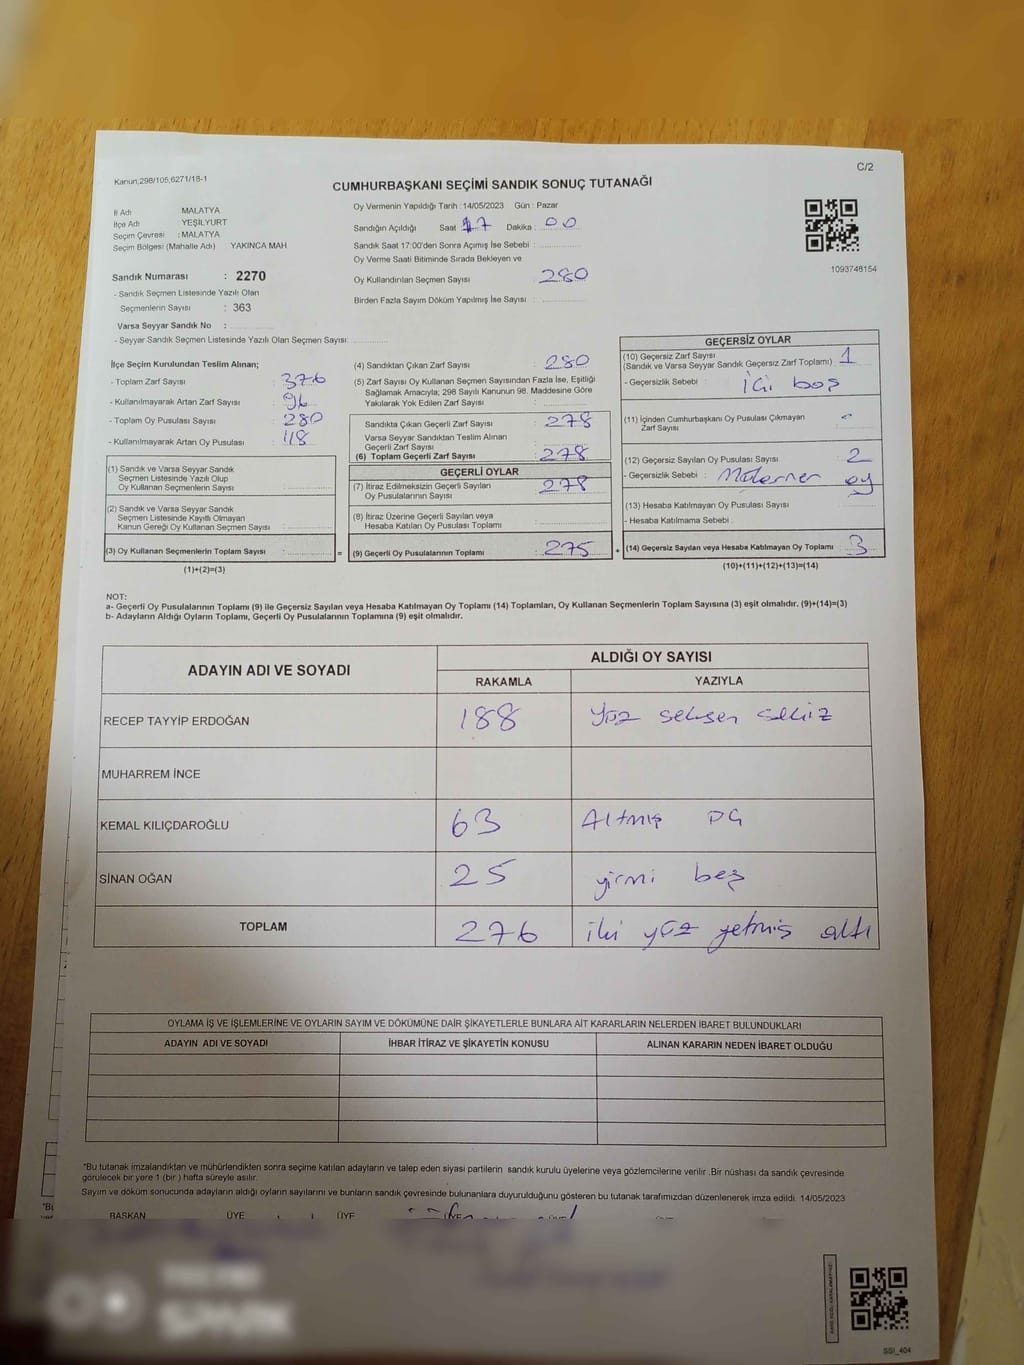 C/2
Kanun;298/105,6271/18-1
CUMHURBAŞKANI SEÇİMİ SANDIK SONUÇ TUTANAĞI
İl Adı MALATYA
İlçe Adı : YEŞİLYURT
Seçim Çevresi : MALATYA
Seçim Bölgesi (Mahalle Adı) : YAKINCA MAH
Sandık Numarası : 2270
- Sandık Seçmen Listesinde Yazılı Olan
Seçmenlerin Sayısı : 363
Varsa Seyyar Sandık No :
- Seyyar Sandık Seçmen Listesinde Yazılı Olan Seçmen Sayısı:
Oy Vermenin Yapıldığı Tarih :14/05/2023 Gün : Pazar
Sandığın Açıldığı Saat 17 Dakika : 00
Sandık Saat 17:00'den Sonra Açımış İse Sebebi :
Oy Verme Saati Bitiminde Sırada Bekleyen ve
Oy Kullandırılan Seçmen Sayısı : 280
Birden Fazla Sayım Döküm Yapılmış İse Sayısı :
1093748154
İlçe Seçim Kurulundan Teslim Alınan;
- Toplam Zarf Sayısı : 376
- Kullanılmayarak Artan Zarf Sayısı : 96
- Toplam Oy Pusulası Sayısı : 280
- Kullanılmayarak Artan Oy Pusulası : 118
(1) Sandık ve Varsa Seyyar Sandık
Seçmen Listesinde Yazılı Olup
Oy Kullanan Seçmenlerin Sayısı :
(2) Sandık ve Varsa Seyyar Sandık
Seçmen Listesinde Kayıtlı Olmayan
Kanun Gereği Oy Kullanan Seçmen Sayısı :
(3) Oy Kullanan Seçmenlerin Toplam Sayısı : =
(1)+(2)=(3)
(4) Sandıktan Çıkan Zarf Sayısı : 280
(5) Zarf Sayısı Oy Kullanan Seçmen Sayısından Fazla İse, Eşitliği
Sağlamak Amacıyla; 298 Sayılı Kanunun 98. Maddesine Göre
Yakılarak Yok Edilen Zarf Sayısı :
Sandıkta Çıkan Geçerli Zarf Sayısı : 278
Varsa Seyyar Sandıktan Teslim Alınan
Geçerli Zarf Sayısı :
(6) Toplam Geçerli Zarf Sayısı : 278
GEÇERLİ OYLAR
(7) İtiraz Edilmeksizin Geçerli Sayılan
Oy Pusulalarının Sayısı : 278
(8) İtiraz Üzerine Geçerli Sayılan veya
Hesaba Katılan Oy Pusulası Toplamı :
(9) Geçerli Oy Pusulalarının Toplamı : 275 +
GEÇERSİZ OYLAR
(10) Geçersiz Zarf Sayısı
(Sandık ve Varsa Seyyar Sandık Geçersiz Zarf Toplamı) : 1
- Geçersizlik Sebebi : içi boş
(11) İçinden Cumhurbaşkanı Oy Pusulası Çıkmayan
Zarf Sayısı :
(12) Geçersiz Sayılan Oy Pusulası Sayısı : 2
- Geçersizlik Sebebi : oy
(13) Hesaba Katılmayan Oy Pusulası Sayısı :
- Hesaba Katılmama Sebebi :
(14) Geçersiz Sayılan veya Hesaba Katılmayan Oy Toplamı : 3
(10)+(11)+(12)+(13)=(14)
NOT:
a- Geçerli Oy Pusulalarının Toplamı (9) ile Geçersiz Sayılan veya Hesaba Katılmayan Oy Toplamı (14) Toplamları, Oy Kullanan Seçmenlerin Toplam Sayısına (3) eşit olmalıdır. (9)+(14)=(3)
b- Adayların Aldığı Oyların Toplamı, Geçerli Oy Pusulalarının Toplamına (9) eşit olmalıdır.
ADAYIN ADI VE SOYADI ALDIĞI OY SAYISI
RAKAMLA YAZIYLA
RECEP TAYYİP ERDOĞAN 188 Yüz seksen sekiz
MUHARREM İNCE
KEMAL KILIÇDAROĞLU 63 Altmış üç
SİNAN OĞAN 25 yirmi beş
TOPLAM 276 iki yüz yetmiş altı
OYLAMA İŞ VE İŞLEMLERİNE VE OYLARIN SAYIM VE DÖKÜMÜNE DAİR ŞİKAYETLERLE BUNLARA AİT KARARLARIN NELERDEN İBARET BULUNDUKLARI
ADAYIN ADI VE SOYADI İHBAR İTİRAZ VE ŞİKAYETİN KONUSU ALINAN KARARIN NEDEN İBARET OLDUĞU
*Bu tutanak imzalandıktan ve mühürlendikten sonra seçime katılan adayların ve talep eden siyasi partilerin sandık kurulu üyelerine veya gözlemcilerine verilir .Bir nüshası da sandık çevresinde
görülecek bir yere 1 (bir ) hafta süreyle asılır.
Sayım ve döküm sonucunda adayların aldığı oyların sayılarını ve bunların sandık çevresinde bulunanlara duyurulduğunu gösteren bu tutanak tarafımızdan düzenlenerek imza edildi. 14/05/2023
BAŞKAN ÜYE ÜYE ÜYE
SSI_404